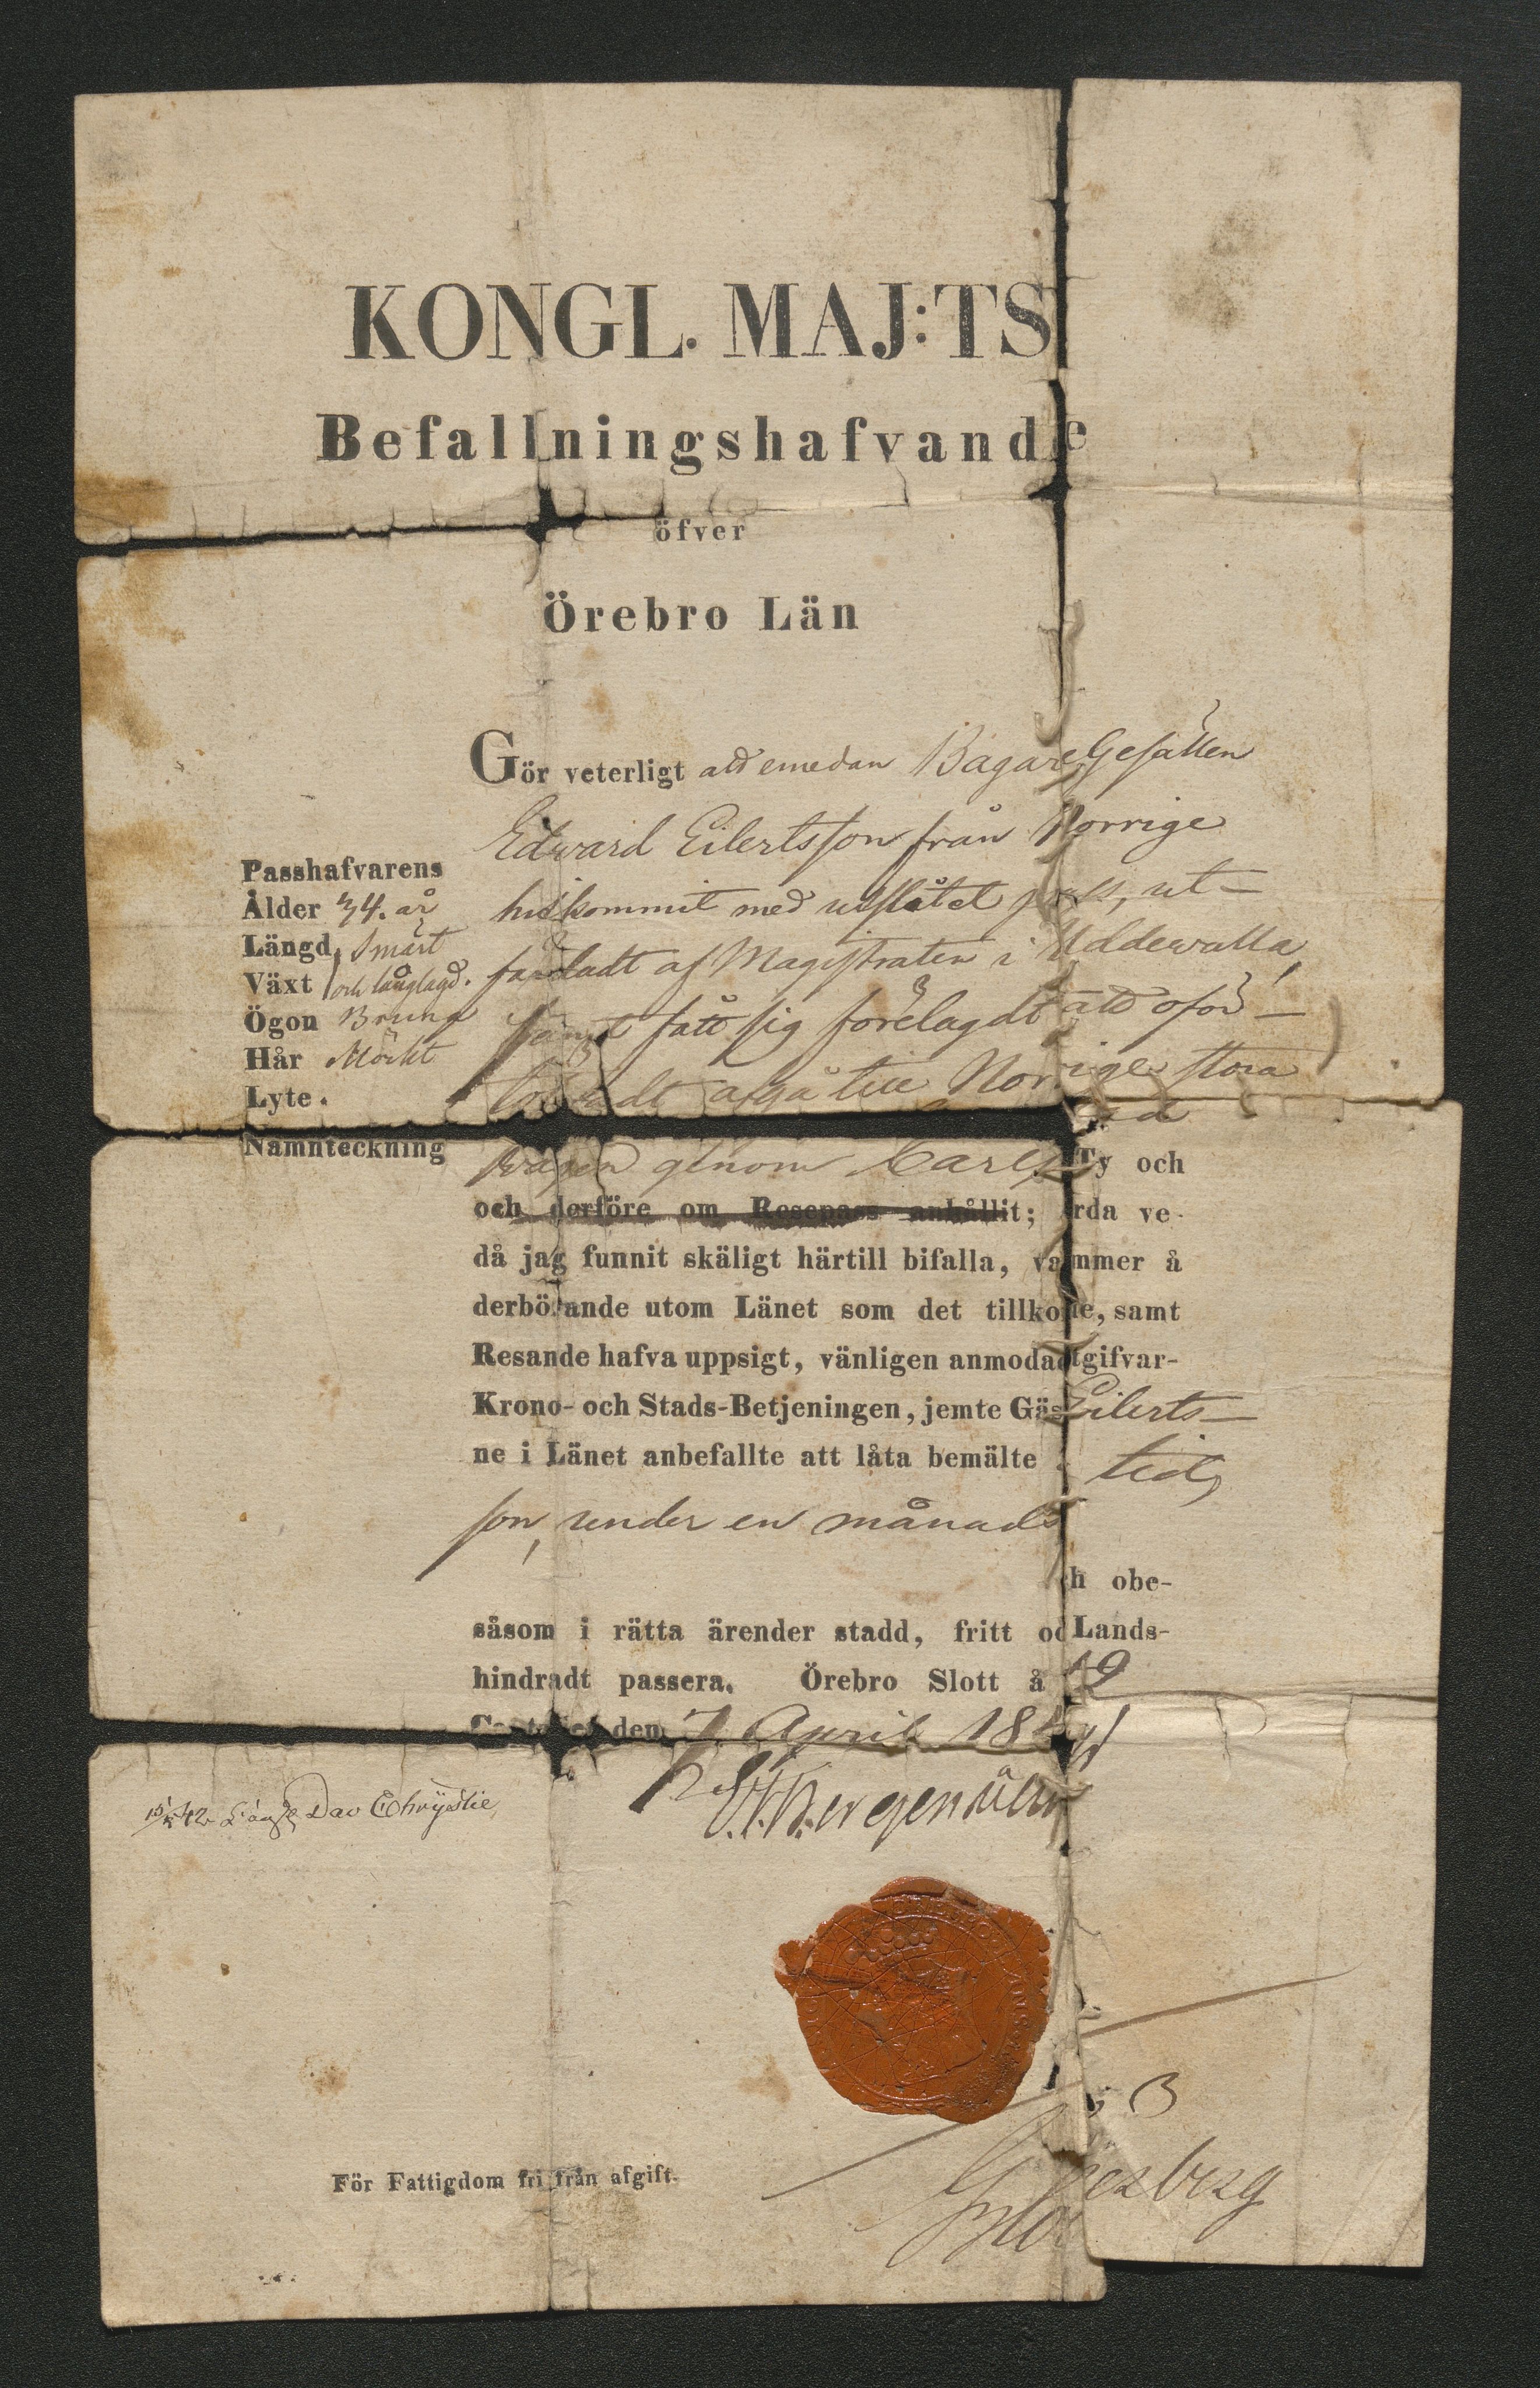 KONGL. MAJ:TS
Befallningshafvande
öfver
Örebro Län
Gör veterligt att emedan Bagare Gesällen
Edward Eilertsson från Norrige
hitkommit med utslitet pass, ut-
färdadt af Magistraten i Uddewalla,
samt fått sig förelagdt att oför-
afgå till Norrige stora
vägen genom
och derföre om Resepass anhållit; Ty och
då jag funnit skäligt härtill bifalla, varda ve-
derbörande utom Länet som det tillkommer å
Resande hafva uppsigt, vänligen anmodade, samt
Krono- och Stads-Betjeningen, jemte Gästgifvar-
ne i Länet anbefallte att låta bemälte Eilerts-
son, under en månads tid,
såsom i rätta ärender stadd, fritt och obe-
hindradt passera. Örebro Slott å Lands-
Contoiret den 7 April 1842
Passhafvarens
Ålder 34. år
Längd Smärt
Växt och långlagd.
Ögon Bruna
Hår Mörkt
Lyte.
Namnteckning
För Fattigdom fri från afgift.